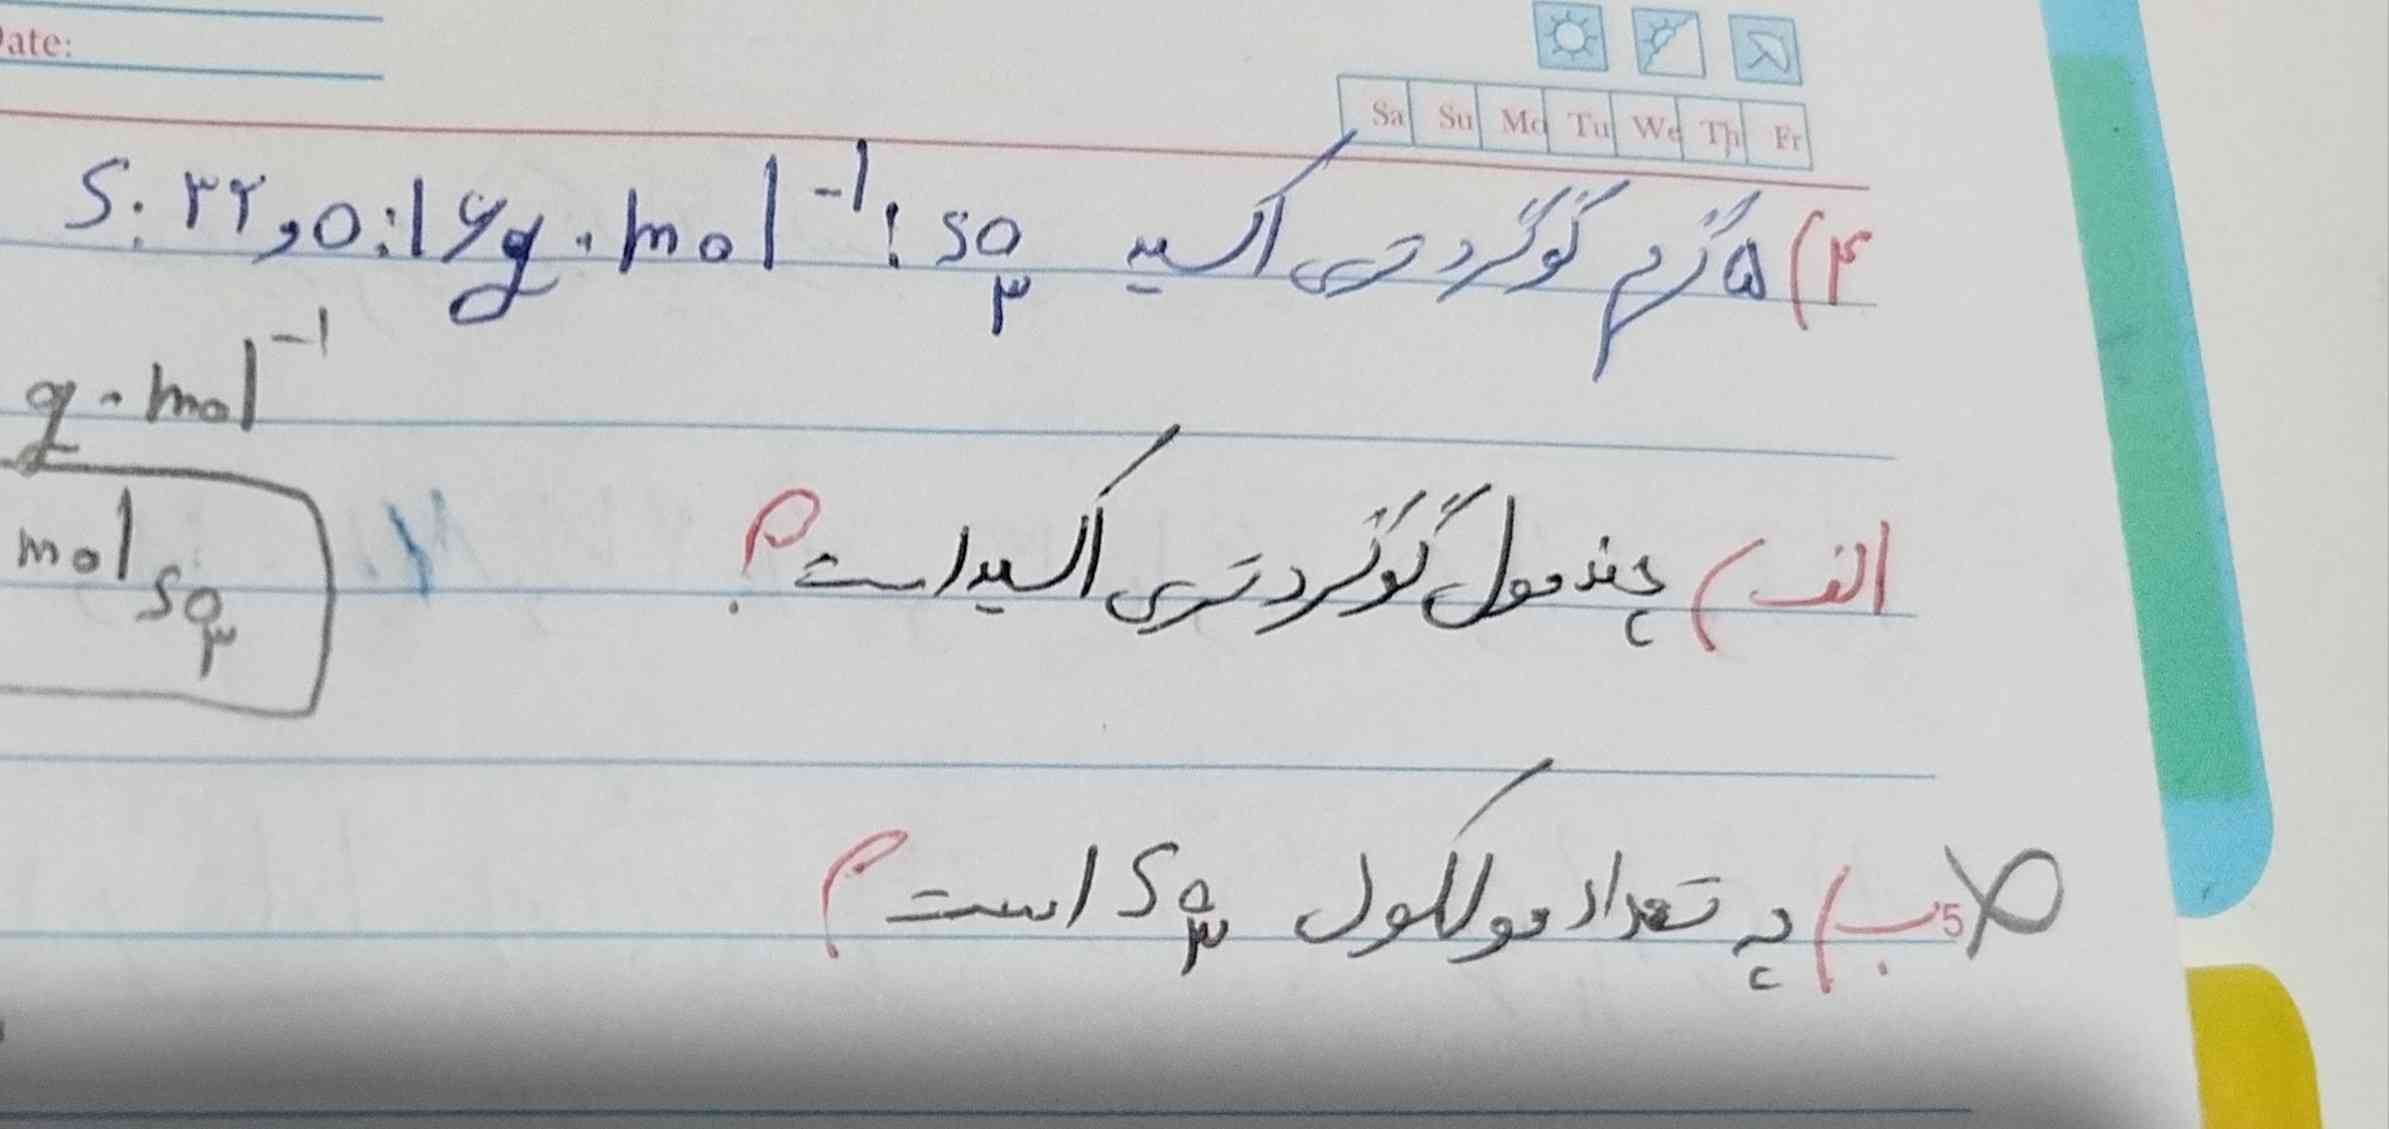 Date:
Sa Su Mo Tu We Th Fr
۴) ۵ گرم گوگرد تری اکسید SO۳ : S:۳۲, O:۱۶ g.mol⁻¹
g.mol⁻¹
الف) چند مول گوگرد تری اکسید است؟
mol SO۳
ب) چه تعداد مولکول SO۳ است؟
5